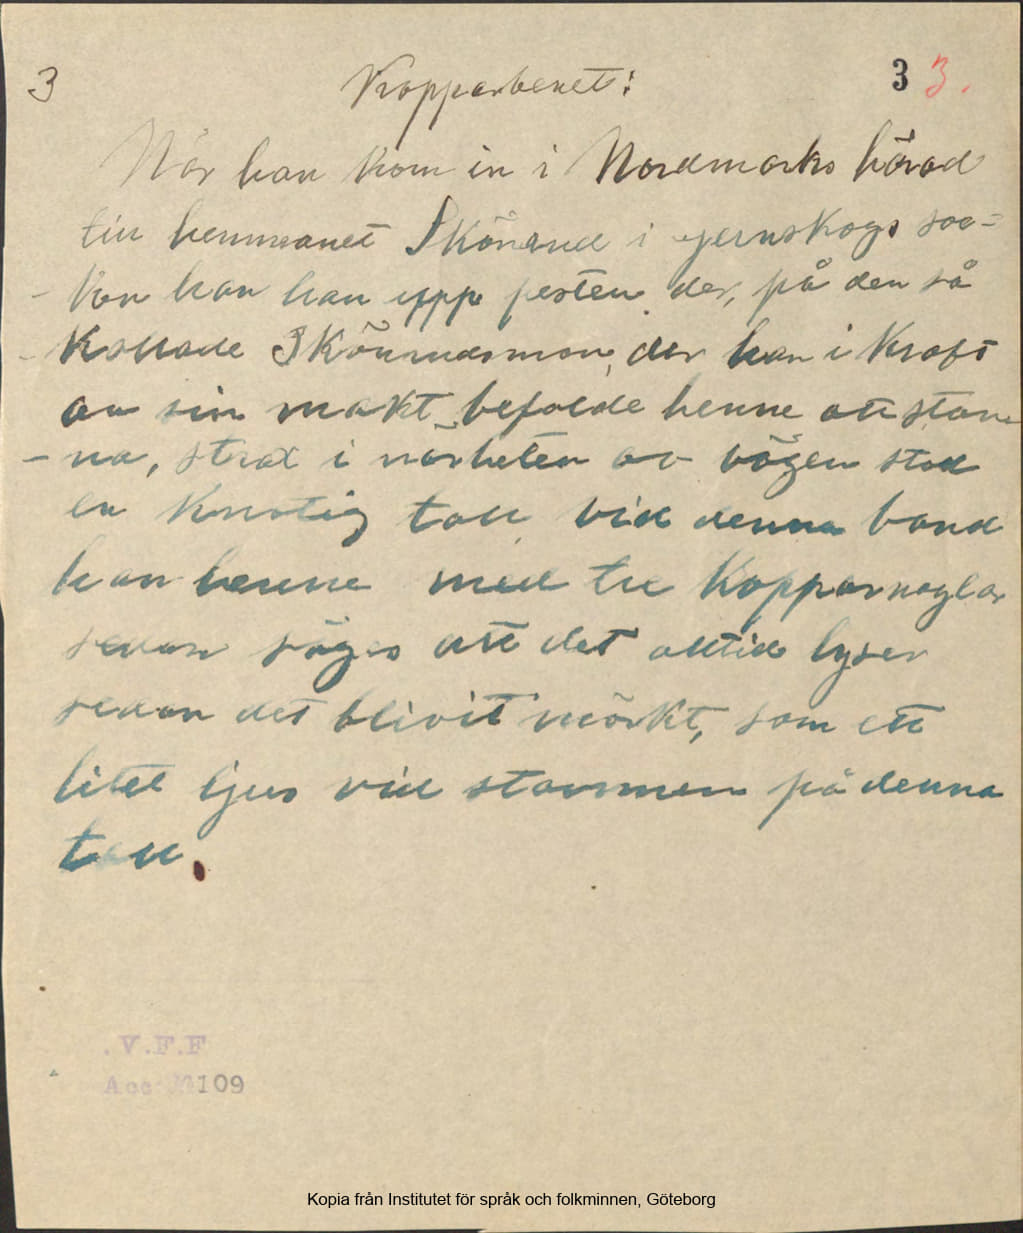 3 Kopparbenet: 3 3.
När han kom in i Nordmarks härad
till hemmanet Skönnud i jernskogs soc=
- ken han han upp pesten der, på den så
- kallade Skönnudsmon, der han i kraft
av sin makt befalde henne att stan
- na, strax i närheten av vägen stod
en knotig tall, vid denna band
han henne med tre kopparnaglar
sedan säges att det alltid lyser
sedan det blivit mörkt, som ett
litet ljus vid stammen på denna
tall.
.V.F.F
Acc 109
Kopia från Institutet för språk och folkminnen, Göteborg